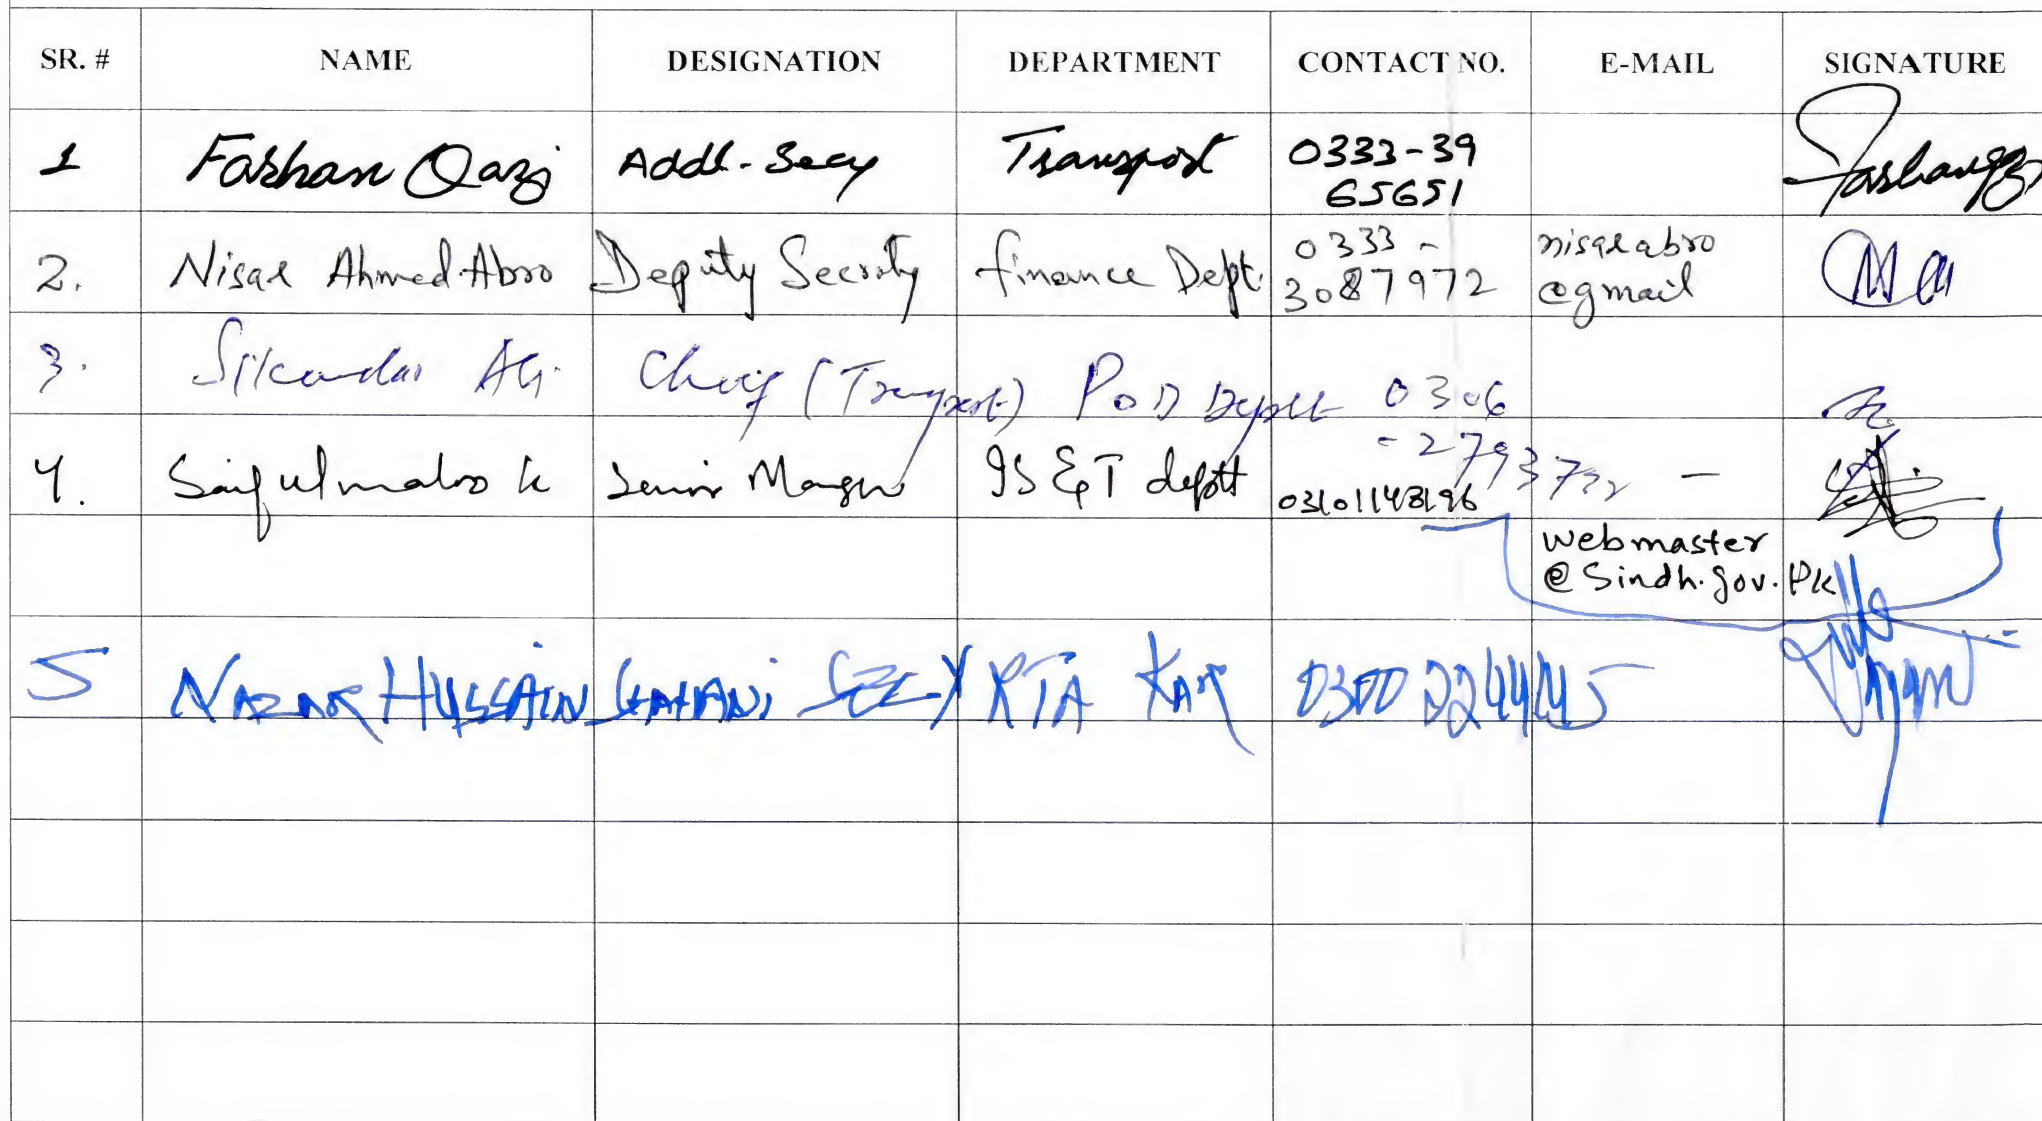 SR. # NAME DESIGNATION DEPARTMENT CONTACT NO. E-MAIL SIGNATURE
1 Farhan Qazi Addl-Secy Transport 0333-39
65651
2. Nisar Ahmed Abro Deputy Secrety finance Dept. 0333 - nisarabro
3087972 @gmail
3. Sikandar Ali Chief (Transport) P&D Deptt 0306
-27937
4. Saifulmalook Senior Manager IS&T deptt 03101143196 -
webmaster
@Sindh.gov.PK
5 NAZAR HUSSAIN SECY RTA KAR 0300 2244445